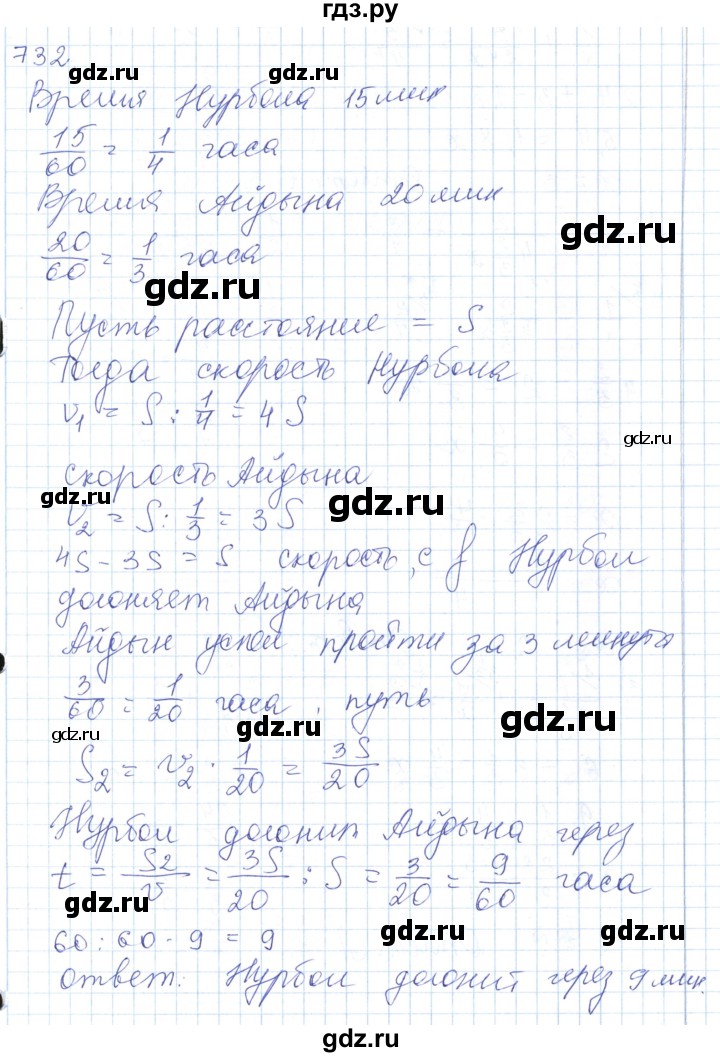 гдз.ру
732
gdz.ru gdz.ru
Время Нурбола 15 мин
15/60 = 1/4 часа
gdz.ru
Время Айдына 20 мин
gdz.ru
20/60 = 1/3 часа
gdz.ru
Пусть расстояние = S
gdz.ru
Тогда скорость Нурбола
V₁ = S : 1/4 = 4S
gdz.ru
скорость Айдына
gdz.ru gdz.ru
V₂ = S : 1/3 = 3S
4S - 3S = S скорость, с Нурбол
догоняет Айдына
gdz.ru gdz.ru
Айдын успел пройти за 3 минуты
3/60 = 1/20 часа, путь
gdz.ru gdz.ru gdz.ru
S₂ = V₂ · 1/20 = 3S/20
Нурбол догонит Айдына через
gdz.ru
t = S2/V = 3S/20 : S = 3/20 = 9/60 часа
gdz.ru
60 : 60 · 9 = 9
gdz.ru
ответ: Нурбол догонит через 9 мин.
gdz.ru gdz.ru
gdz.ru